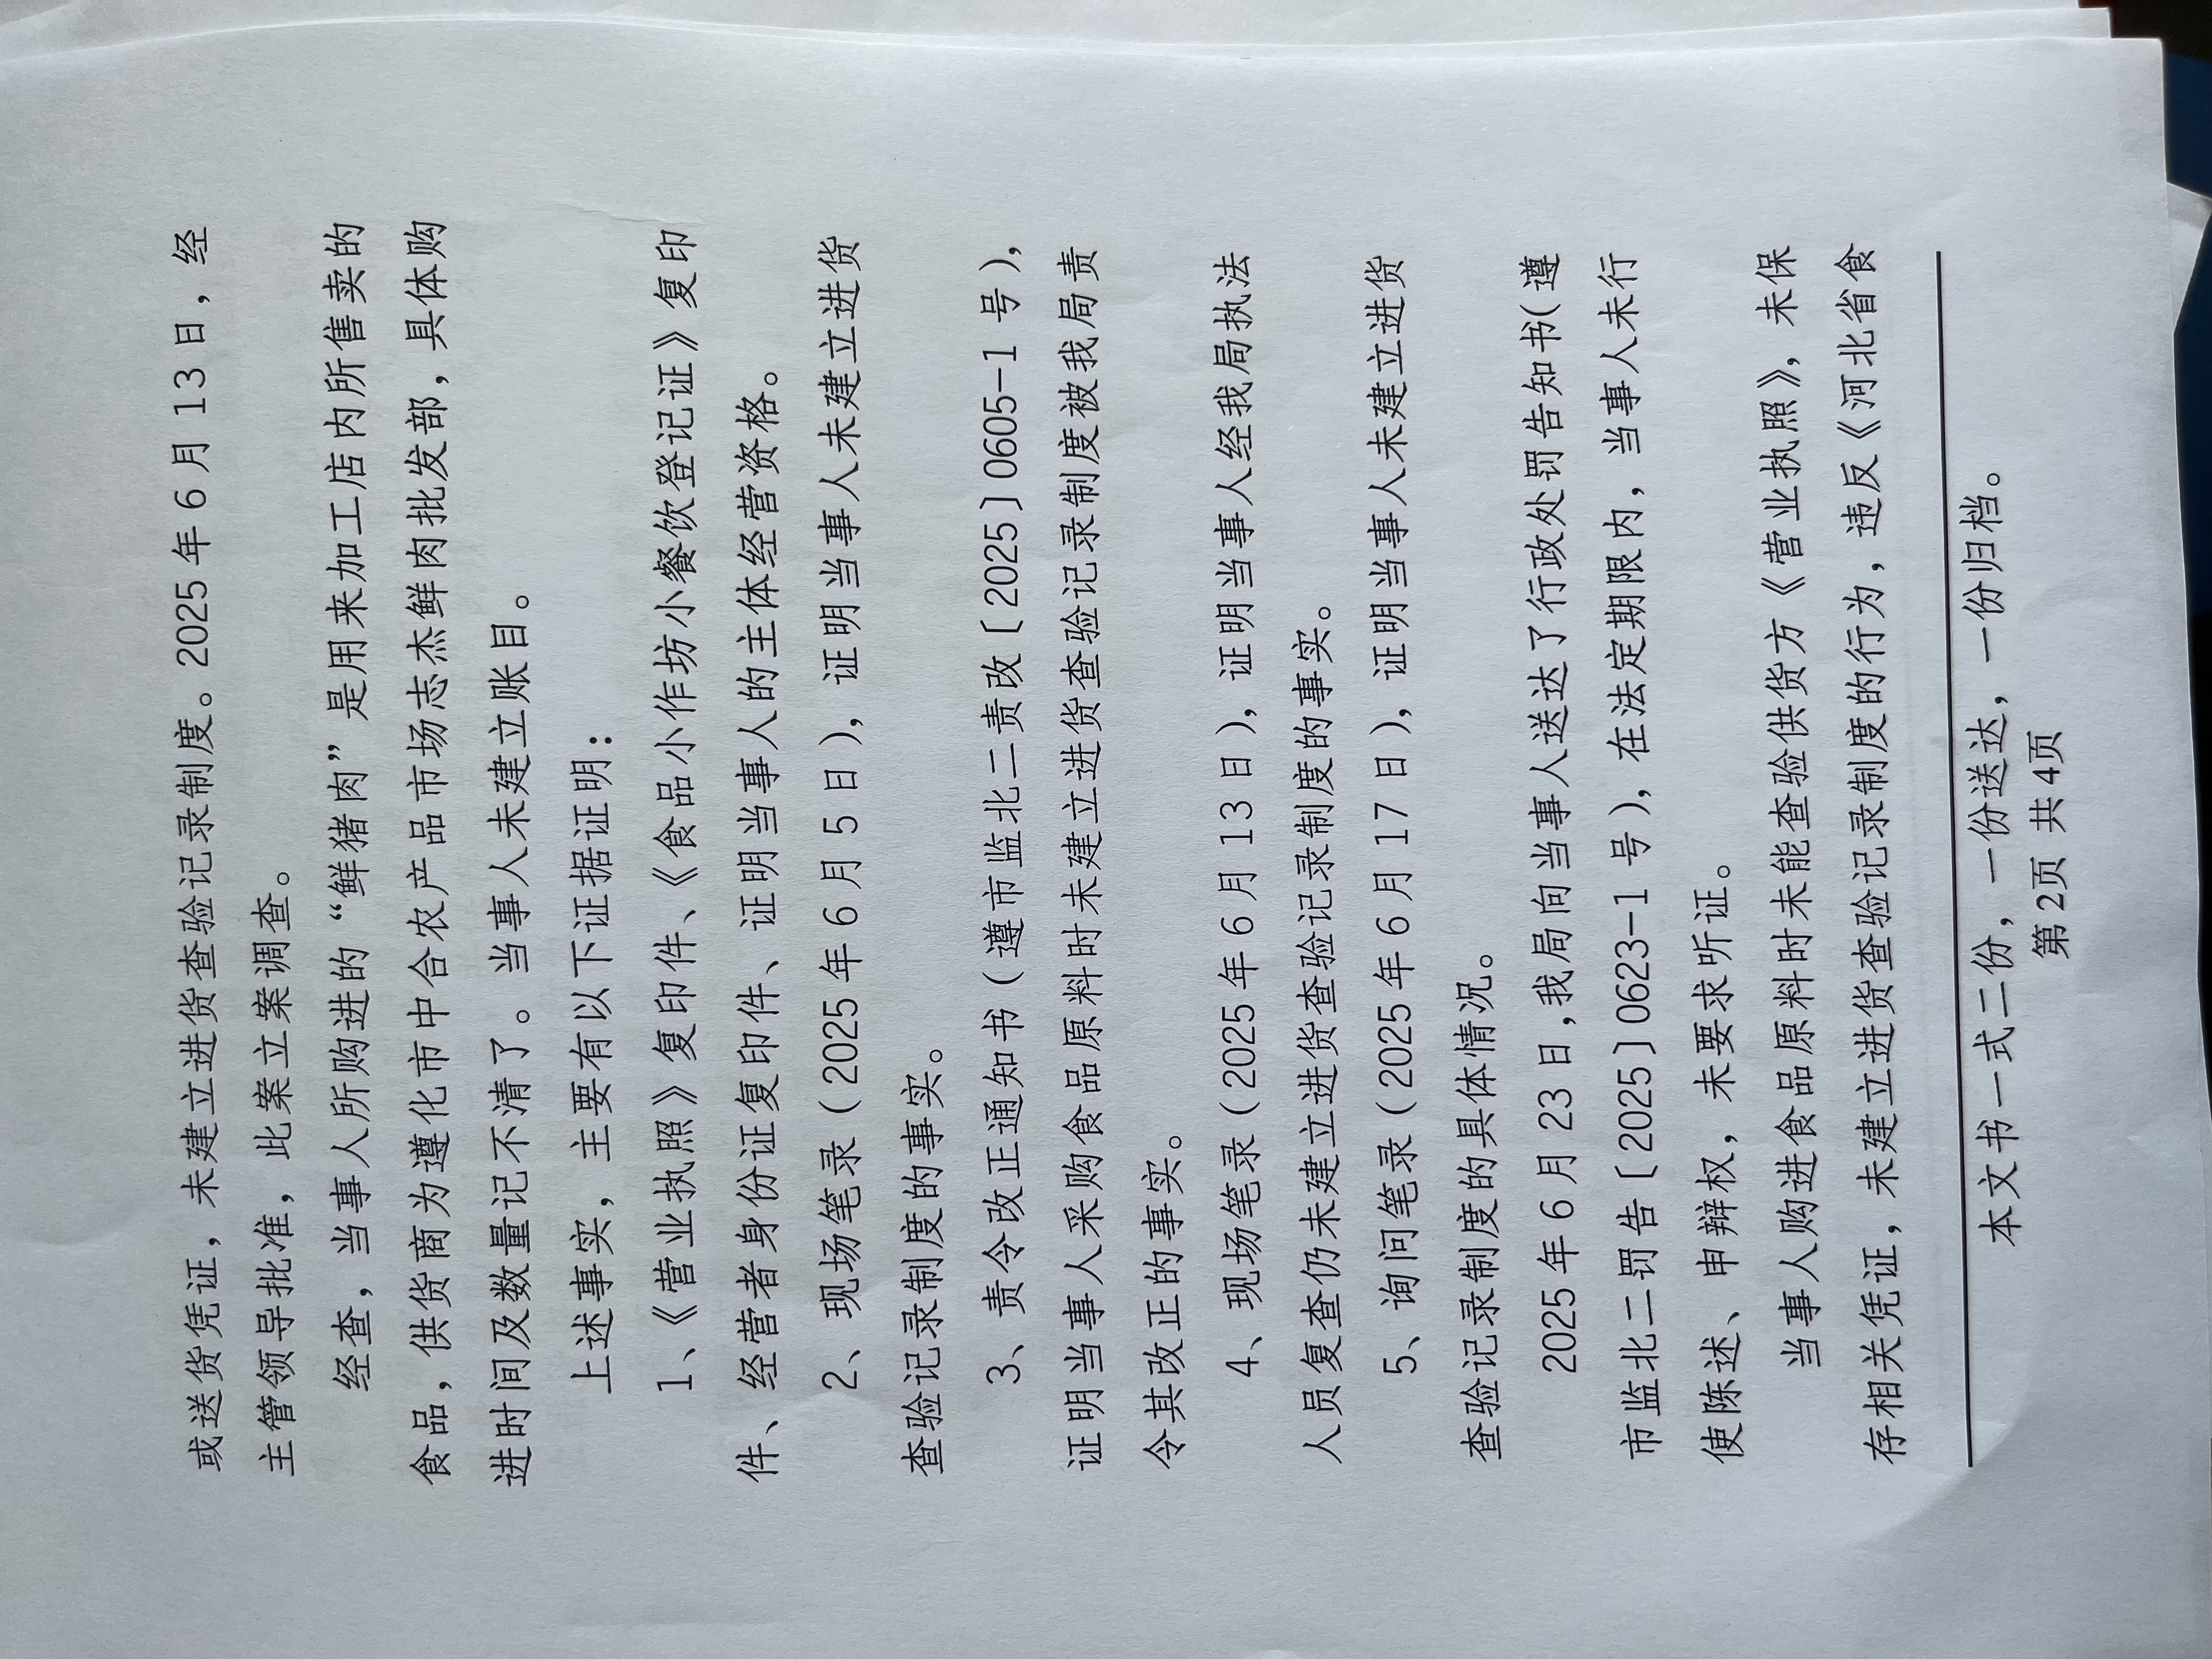 或送货凭证，未建立进货查验记录制度。2025年6月13日，经
主管领导批准，此案立案调查。
经查，当事人所购进的“鲜猪肉”是用来加工店内所售卖的
食品，供货商为遵化市中合农产品市场志杰鲜肉批发部，具体购
进时间及数量记不清了。当事人未建立账目。
上述事实，主要有以下证据证明：
1、《营业执照》复印件、《食品小作坊小餐饮登记证》复印
件、经营者身份证复印件、证明当事人的主体经营资格。
2、现场笔录（2025年6月5日），证明当事人未建立进货
查验记录制度的事实。
3、责令改正通知书（遵市监北二责改〔2025〕0605-1号），
证明当事人采购食品原料时未建立进货查验记录制度被我局责
令其改正的事实。
4、现场笔录（2025年6月13日），证明当事人经我局执法
人员复查仍未建立进货查验记录制度的事实。
5、询问笔录（2025年6月17日），证明当事人未建立进货
查验记录制度的具体情况。
2025年6月23日,我局向当事人送达了行政处罚告知书(遵
市监北二罚告〔2025〕0623-1号），在法定期限内，当事人未行
使陈述、申辩权，未要求听证。
当事人购进食品原料时未能查验供货方《营业执照》，未保
存相关凭证，未建立进货查验记录制度的行为，违反《河北省食
本文书一式二份，一份送达，一份归档。
第2页 共4页